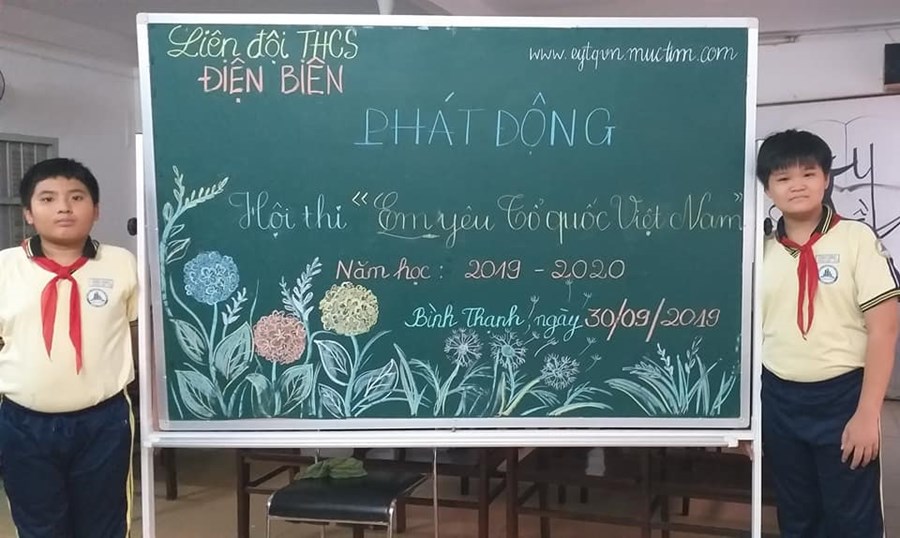 Liên đội THCS
ĐIỆN BIÊN
www.eytqvn.muctim.com
PHÁT ĐỘNG
Hội thi “Em yêu Tổ quốc Việt Nam”
Năm học : 2019 - 2020
Bình Thạnh, ngày 30/09/2019